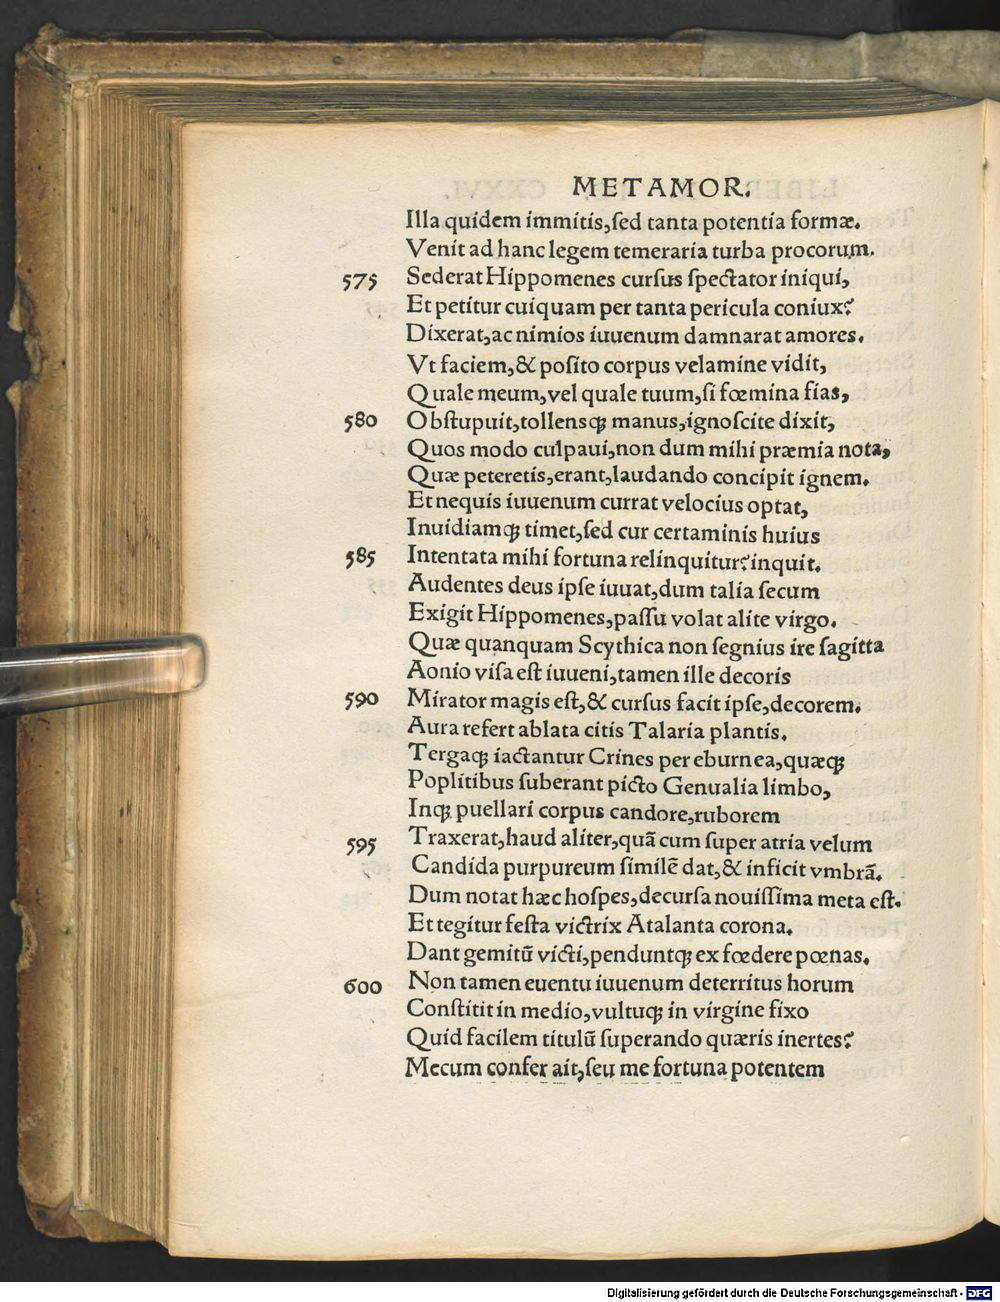 METAMOR.
Illa quidem immitis,ſed tanta potentia formæ.
Venit ad hanc legem temeraria turba procorum.
575 Sederat Hippomenes curſus ſpectator iniqui,
Et petitur cuiquam per tanta pericula coniux?
Dixerat,ac nimios iuuenum damnarat amores.
Vt faciem,& poſito corpus velamine vidit,
Quale meum,vel quale tuum,ſi fœmina fias,
580 Obſtupuit,tollensq; manus,ignoſcite dixit,
Quos modo culpaui,non dum mihi præmia nota,
Quæ peteretis,erant,laudando concipit ignem.
Et nequis iuuenum currat velocius optat,
Inuidiamq; timet,ſed cur certaminis huius
585 Intentata mihi fortuna relinquitur?inquit.
Audentes deus ipſe iuuat,dum talia ſecum
Exigit Hippomenes,paſſu volat alite virgo.
Quæ quanquam Scythica non ſegnius ire ſagitta
Aonio viſa eſt iuueni,tamen ille decoris
590 Mirator magis eſt,& curſus facit ipſe,decorem.
Aura refert ablata citis Talaria plantis.
Tergaq; iactantur Crines per eburnea,quæq;
Poplitibus ſuberant picto Genualia limbo,
Inq; puellari corpus candore,ruborem
595 Traxerat,haud aliter,quã cum ſuper atria velum
Candida purpureum ſimilẽ dat,& inficit vmbrã.
Dum notat hæc hoſpes,decurſa nouiſſima meta eſt.
Et tegitur feſta victrix Atalanta corona.
Dant gemitũ victi,penduntq; ex fœdere pœnas.
600 Non tamen euentu iuuenum deterritus horum
Conſtitit in medio,vultuq; in virgine fixo
Quid facilem titulũ ſuperando quæris inertes?
Mecum confer ait,ſeu me fortuna potentem
Digitalisierung gefördert durch die Deutsche Forschungsgemeinschaft - DFG